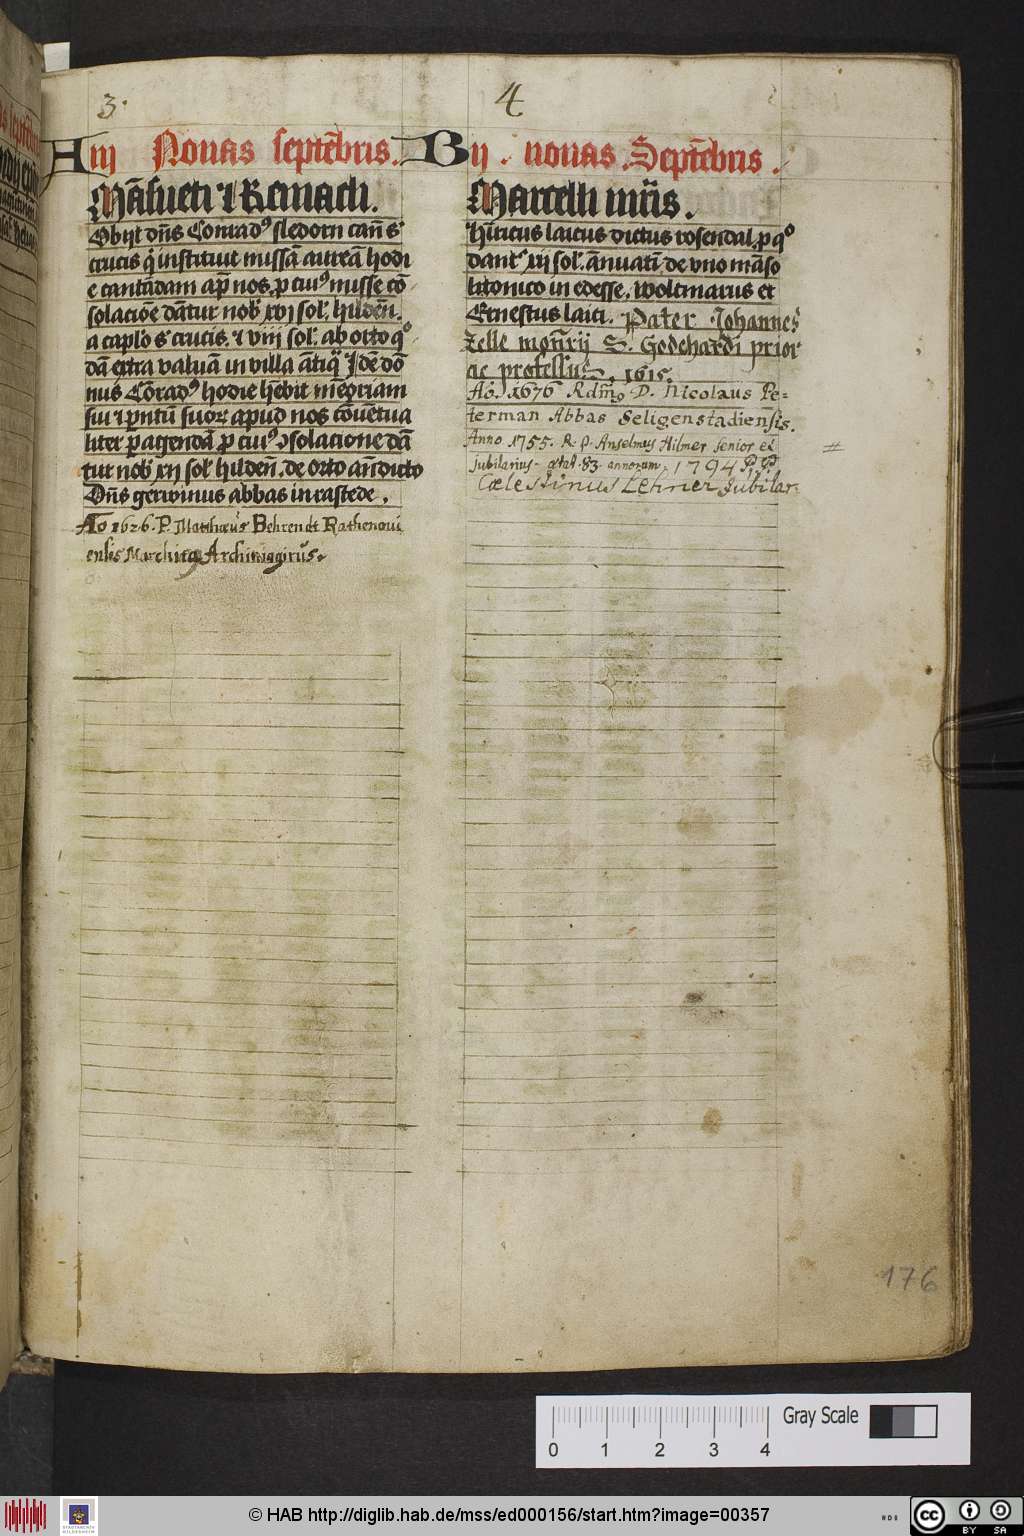 3.
A iij Nonas septēbris.
Māsueti ⁊ Remacli.
Obijt dn̄s Conradꝰ sledorn can̄ s̄
crucis q̄ instituit missā aureā hodi
e cantādam ap̄ nos. ꝓ cuiꝰ misse cō
solacōe dātur nob̄ xvj sol. hilden̄.
a caplo s̄ crucis. ⁊ viij sol. ab orto qͦ
dā extra valuā in villa ātiq̄. Idē dō
nus Cōradꝰ hodie h̄ebit mēoriam
sui ⁊ pn̄tū suoꝝ apud nos cōuētua
liter ꝑagendā ꝓ cuiꝰ ↄsolacione dā
tur nob̄ xij sol hilden̄. de orto an̄dicto
Dn̄s gerwinus abbas in rastede.
Ao 1626. P. Matthæus Behrendt Rathenoui
ensis Marchita Archimagirus.
4
B ij. nonas. Septēbris.
Marcelli mr̄is.
hīricus laicus dictus rosendal. ꝓ qͦ
dant᷑ xij sol. ānuatī de vno māso
litonico in edesse. Wolcmarus et
Ernestus laici. Pater Johannes
Zelle mon̄rij S. Godehardi prior
ac professus. 1615.
Ao. 1676 Rdmo D. Nicolaus Pe=
terman Abbas Seligenstadiensis.
Anno 1755. R. P. Anselmus Hilmer senior et
jubilarius. ætat. 83. annorum. 1794 P. P.
Cœlestinus Lehner Jubilar.
#
176
Gray Scale
0 1 2 3 4
© HAB http://diglib.hab.de/mss/ed000156/start.htm?image=00357
STADTARCHIV HILDESHEIM
cc BY SA